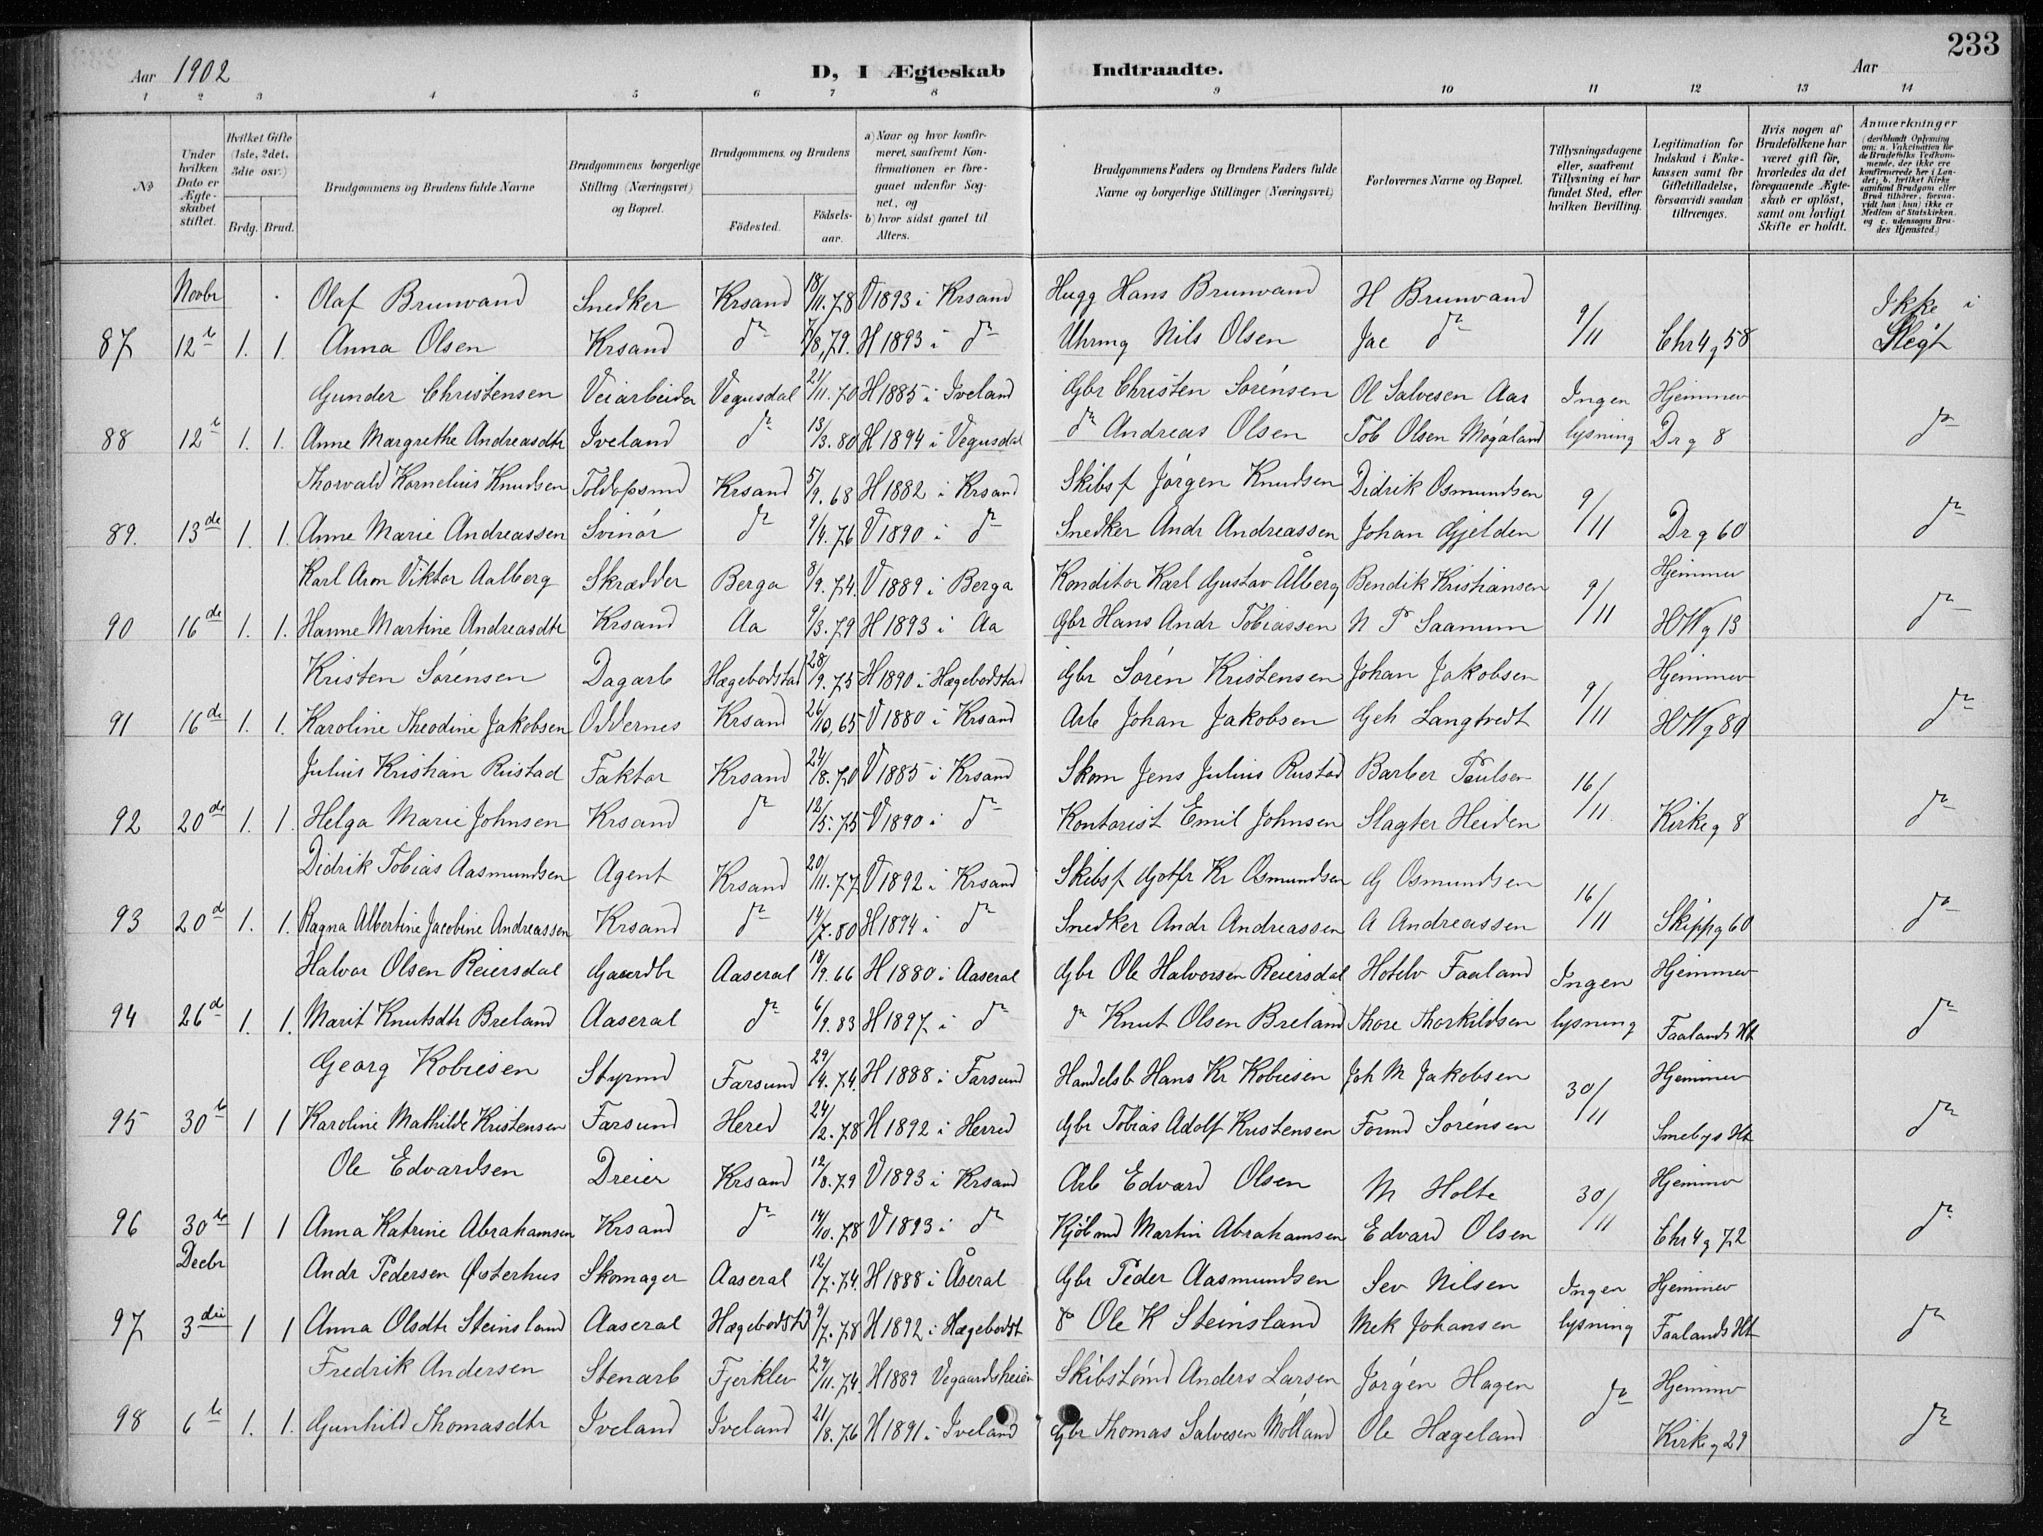 233
Aar 1902 D, I Ægteskab Indtraadte. Aar
1 2 3 4 5 6 7 8 9 10 11 12 13 14
No
Under hvilken Dato er Ægteskabet stiftet.
Hvilket Gifte (1ste, 2det, 3die osv.)
Brdg. Brud.
Brudgommens og Brudens fulde Navne
Brudgommens borgerlige Stilling (Næringsvei) og Bopæl.
Brudgommens og Brudens
Fødested. Fødselsaar.
a) Naar og hvor konfirmeret, saafremt Konfirmationen er foregaaet udenfor Sognet, og
b) hvor sidst gaaet til Alters.
Brudgommens Faders og Brudens Faders fulde Navne og borgerlige Stillinger (Næringsvei)
Forlovernes Navne og Bopæl.
Tillysningsdagene eller, saafremt Tillysning ei har fundet Sted, efter hvilken Bevilling.
Legitimation for Indskud i Enkekassen samt for Giftetilladelse, forsaavidt saadan tiltrænges.
Hvis nogen af Brudefolkene har været gift før, hvorledes da det foregaaende Ægteskab er opløst, samt om lovligt Skifte er holdt.
Anmærkninger (deriblandt Oplysning om: a. Vakcination for de Brudefolks Vedkommende, der ikke ere konfirmerede her i Landet; b. hvilket Kirkesamfund Brudgom eller Brud tilhører, forsaavidt han (hun) ikke er Medlem af Statskirken, og c. udensogns Brudes Hjemsted.)
Novbr Olaf Brunvand Snedker Krsand 18/11.78 V 1893 i Krsand Hugg Hans Brunvand H Brunvand 9/11 Ikke i
87 12te 1. 1. Anna Olsen Krsand do /8.79. H 1893 i do Uhrmg Nils Olsen Jac do Chr4g 58 Slegt
Gunder Christensen Veiarbeider Vegusdal 21/11.70 H 1885 i Iveland Gbr Christen Sørensen Ol Salvesen Aas Ingen Hjemmev
88 12te 1. 1. Anne Margrethe Andreasdtr Iveland do 13/3.80 H 1894 i Vegusdal do Andreas Olsen Tob Olsen Møgaland lysning Dr g 8 do
Thorvald Kornelius Knudsen Toldopsmd Krsand 5/9.68 H 1882 i Krsand Skibsf Jørgen Knudsen Didrik Osmundsen 9/11
89. 13de 1. 1. Anne Marie Andreassen Svinør do 9/4.76 V 1890 i do Snedker Andr Andreassen Johan Gjelden Dr g 60 do
Karl Aron Viktor Aalberg Skrædder Berga 8/9.74. V 1889 i Berga Konditor Karl Gustav Ålberg Bendik Kristiansen 9/11 Hjemmev
90 16de 1. 1. Hanne Martine Andreasdtr Krsand Aa 9/3.79 H 1893 i Aa Gbr Hans Andr Tobiassen N P Saanum HWg 13 do
Kristen Sørensen Dagarb Hægebodstad 28/9.75 H 1890 i Hægebodstad Gbr Søren Kristensen Johan Jakobsen 9/11 Hjemmev
91 16de 1. 1. Karoline Theodine Jakobsen Oddernes Krsand 26/10.65 V 1880 i Krsand Arb Johan Jakobsen Geh Langtvedt HWg 89 do
Julius Kristian Rustad Faktor Krsand 24/8.70 V 1885 i Krsand Skom Jens Julius Rustad Barber Paulsen 16/11
92 20de 1. 1. Helga Marie Johnsen Krsand do 12/5.75 V 1890 i do Kontorist Emil Johnsen Slagter Heiden Kirkeg 8 do
Didrik Tobias Aasmundsen Agent Krsand 20/11.77 V 1892 i Krsand Skibsf Gotfr Kr Osmundsen G Osmundsen 16/11
93 20d 1. 1. Ragna Albertine Jacobine Andreassen Krsand do 14/7.80 H 1894 i do Snedker Andr Andreassen A Andreassen Skippg 60 do
Halvor Olsen Reiersdal Gaardbr Aaseral 18/9.66 H 1880 i Aaseral Gbr Ole Halvorsen Reiersdal Hotelv Faaland Ingen Hjemmev
94 26d 1. 1. Marit Knutsdtr Breland Aaseral do 6/9.83 H 1897 i do do Knut Olsen Breland Thore Thorkildsen lysning Faalands Ht do
Georg Kobiesen Styrmd Farsund 29/4.74. H 1888 i Farsund Handelsb Hans Kr Kobiesen Joh M Jakobsen 30/11 Hjemmev
95 30te 1 1 Karoline Mathilde Kristensen Farsund Hered 24/2.78 H 1892 i Herred Gbr Tobias Adolf Kristensen Formd Sørensen Smebys Ht do
Ole Edvardsen Dreier Krsand 12/8.79 V 1893 i Krsand Arb Edvard Olsen M Holte 30/11 Hjemmev
96 30te 1 1 Anna Katrine Abrahamsen Krsand do 14/10.78 V 1893 i do Kjøbmd Martin Abrahamsen Edvard Olsen Chr4g 72 do
Decbr Andr Pedersen Østerhus Skomager Aaseral 12/7.74. H 1888 i Åseral Gbr Peder Aasmundsen Sev Nilsen Ingen Hjemmev
97 3die 1 1 Anna Olsdtr Steinsland Aaseral Hægebodstd 9/7.78 H 1892 i Hægebodst do Ole K Steinsland Mek Johansen lysning Faalands Ht do
Fredrik Andersen Stenarb Fjerklev 24/11.74. H 1889 Vegaardsheien Skibstømd Anders Larsen Jørgen Hagen do Hjemmev
98 6te 1. 1. Gunhild Thomasdtr Iveland Iveland 21/8.76 H 1891 i Iveland Gbr Thomas Salvesen Mølland Ole Hægeland Kirkeg 29 do